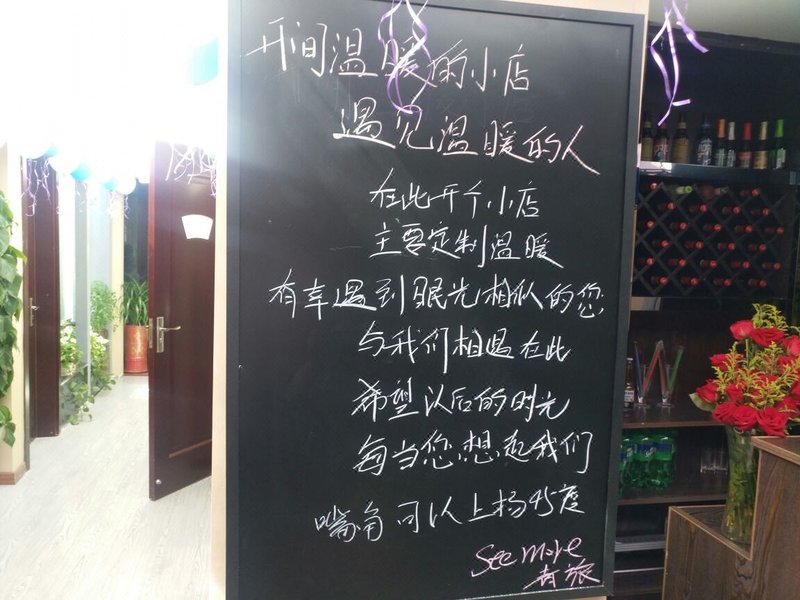 开间温暖的小店
遇见温暖的人
在此开个小店
主要定制温暖
有幸遇到眼光相似的您
与我们相遇在此
希望以后的时光
每当您想起我们
嘴角可以上扬45度
See more
青旅